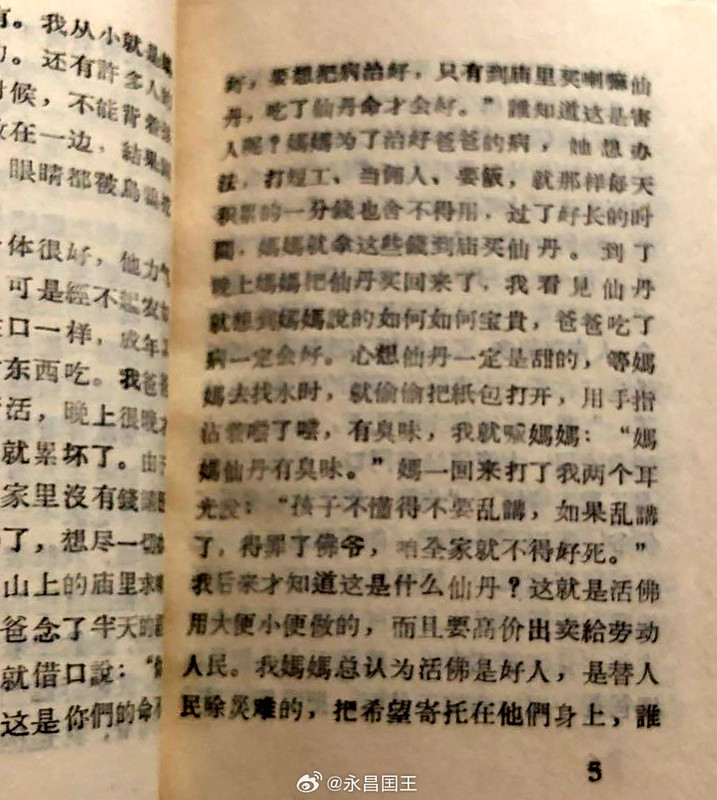 有。我从小就是
的。还有許多人的
时候，不能背着
放在一边，結果
眼睛都被烏鴉
体很好，他力气
可是經不起
口一样，成年
东西吃。我爸爸
活，晚上很晚
就累坏了。由于
家里沒有錢請
了，想尽一切
山上的庙里求
爸念了半天的
就借口說：“
这是你們的命
好，要想把病治好，只有到庙里买喇嘛仙
丹，吃了仙丹命才会好。”誰知道这是害
人呢？媽媽为了治好爸爸的病，她想办
法，打短工、当佣人、要飯，就那样每天
积累的一分錢也舍不得用，过了好长的时
間，媽媽就拿这些錢到庙买仙丹。到了
晚上媽媽把仙丹买回来了，我看見仙丹
就想到媽媽說的如何如何宝貴，爸爸吃了
病一定会好。心想仙丹一定是甜的，等媽
媽去找水时，就偷偷把紙包打开，用手指
沾着嚐了嚐，有臭味，我就喊媽媽：“媽
媽仙丹有臭味。”媽一回来打了我两个耳
光說：“孩子不懂得不要乱講，如果乱講
了，得罪了佛爷，咱全家就不得好死。”
我后来才知道这是什么仙丹？这就是活佛
用大便小便做的，而且要高价出卖給劳动
人民。我媽媽总认为活佛是好人，是替人
民除災难的，把希望寄托在他們身上，誰
5
@永昌国王